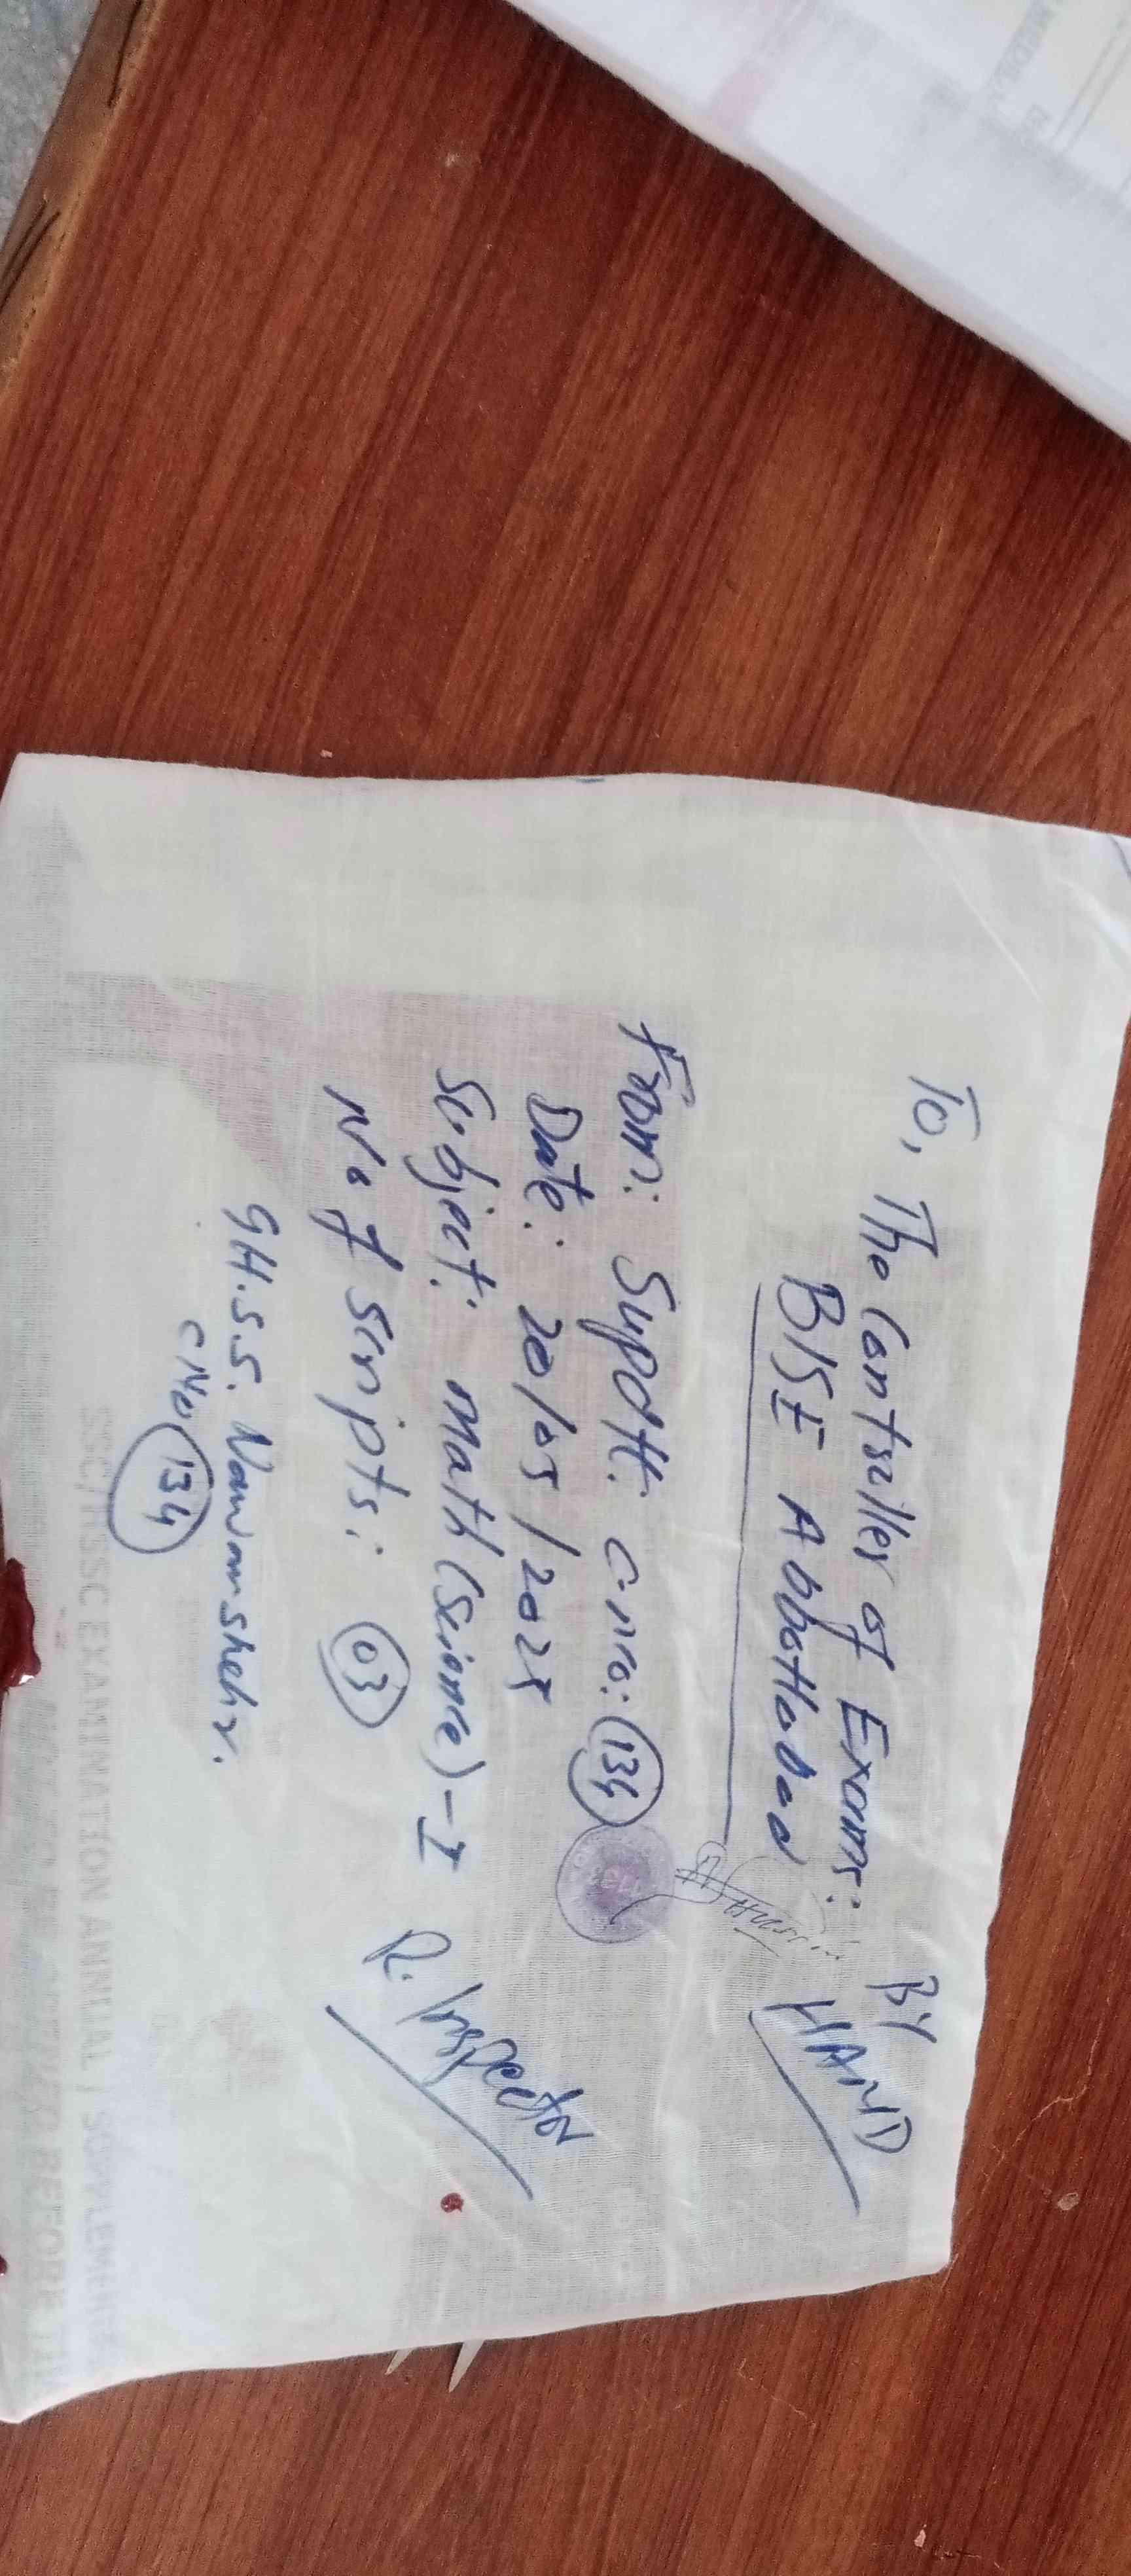 To, The Controller of Exams:
BISE Abbottabad
BY
HAND
From: Supdtt. C.No: 134
Date: 20/05/2025
Subject: Math (Science) - I
No of scripts: 03
R. Inspector
G.H.S.S. Nawansheher.
C.No 134
SSC/HSSC EXAMINATION ANNUAL / SUPPLEMENTA